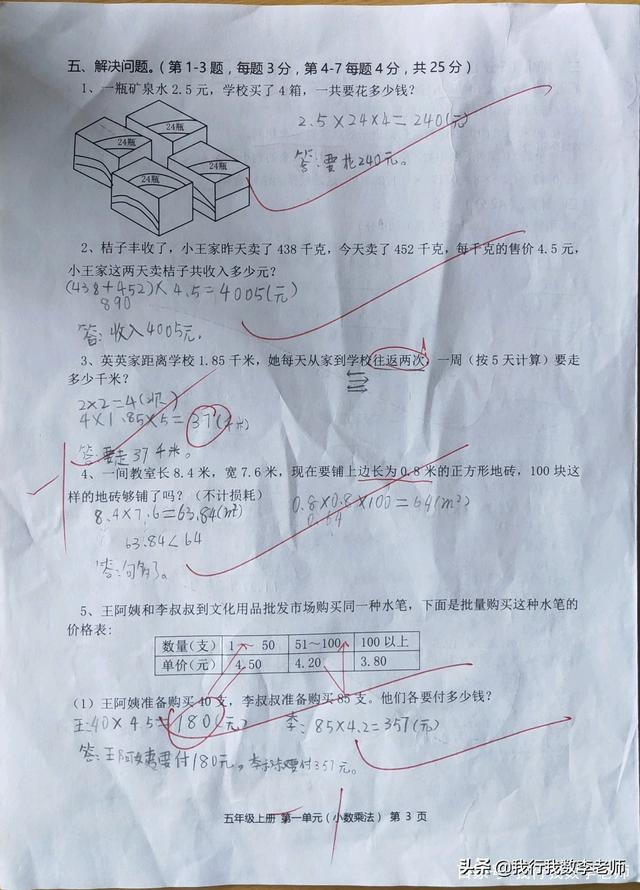 五、解决问题。（第 1-3 题，每题 3 分，第 4-7 每题 4 分，共 25 分）
1、一瓶矿泉水 2.5 元，学校买了 4 箱，一共要花多少钱？
24瓶
24瓶
24瓶
24瓶
2.5×24×4=240(元)
答:要花240元。
2、桔子丰收了，小王家昨天卖了 438 千克，今天卖了 452 千克，每千克的售价 4.5 元，
小王家这两天卖桔子共收入多少元？
(438+452)×4.5=4005(元)
890
答:收入4005元.
3、英英家距离学校 1.85 千米，她每天从家到学校往返两次，一周（按 5 天计算）要走
多少千米？
2×2=4(次)
4×1.85×5=37(千米)
答:要走37千米。
4、一间教室长 8.4 米，宽 7.6 米，现在要铺上边长为 0.8 米的正方形地砖，100 块这
样的地砖够铺了吗？（不计损耗）
0.8×0.8×100=64(m²)
0.64
8.4×7.6=63.84(m²)
63.84<64
答:够了。
-1
5、王阿姨和李叔叔到文化用品批发市场购买同一种水笔，下面是批量购买这种水笔的
价格表：
数量(支) 1～50 51～100 100 以上
单价(元) 4.50 4.20 3.80
（1）王阿姨准备购买 40 支，李叔叔准备购买 85 支。他们各要付多少钱？
王:40×4.5=180(元) 李:85×4.2=357(元)
答:王阿姨要付180元,李叔叔要付357元。
五年级上册 第一单元（小数乘法） 第 3 页
头条 @我行我数李老师